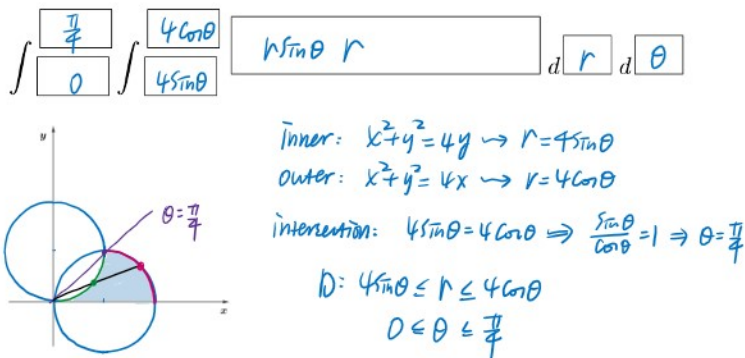 ∫ π/4 0 ∫ 4cosθ 4sinθ rsinθ r d r d θ
inner: x²+y²=4y ⇝ r=4sinθ
outer: x²+y²=4x ⇝ r=4cosθ
intersection: 4sinθ=4cosθ ⇒ sinθ/cosθ=1 ⇒ θ=π/4
D: 4sinθ ≤ r ≤ 4cosθ
0 ≤ θ ≤ π/4
y
θ=π/4
x